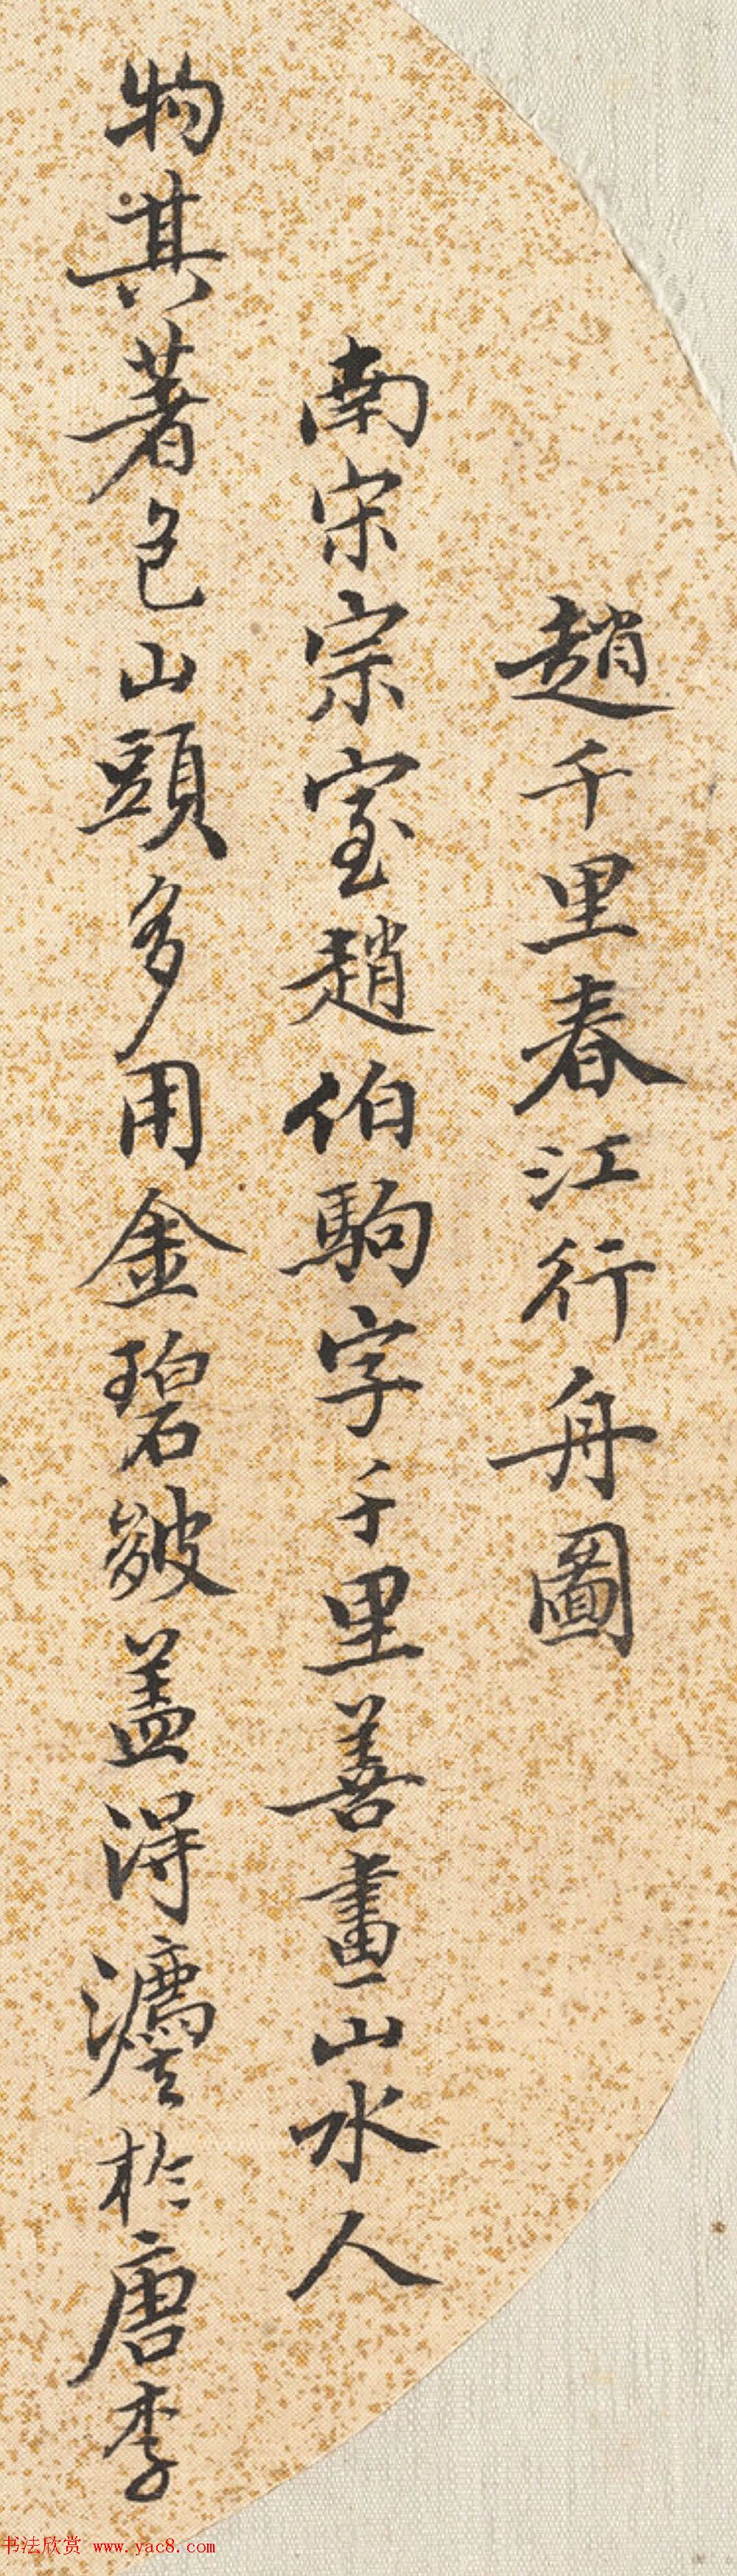 趙千里春江行舟圖
南宋宗室趙伯駒字千里善畫山水人
物其著色山頭多用金碧皴蓋得灋於唐李
书法欣赏 www.yac8.com